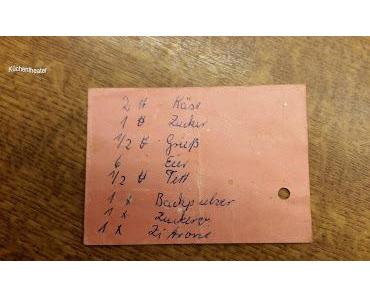 Küchentheater
2 ℔ Käse
1 ℔ Zucker
1/2 ℔ Grieß
6 Eier
1/2 ℔ Fett
1 x Backpulver
1 x
1 x Zitrone